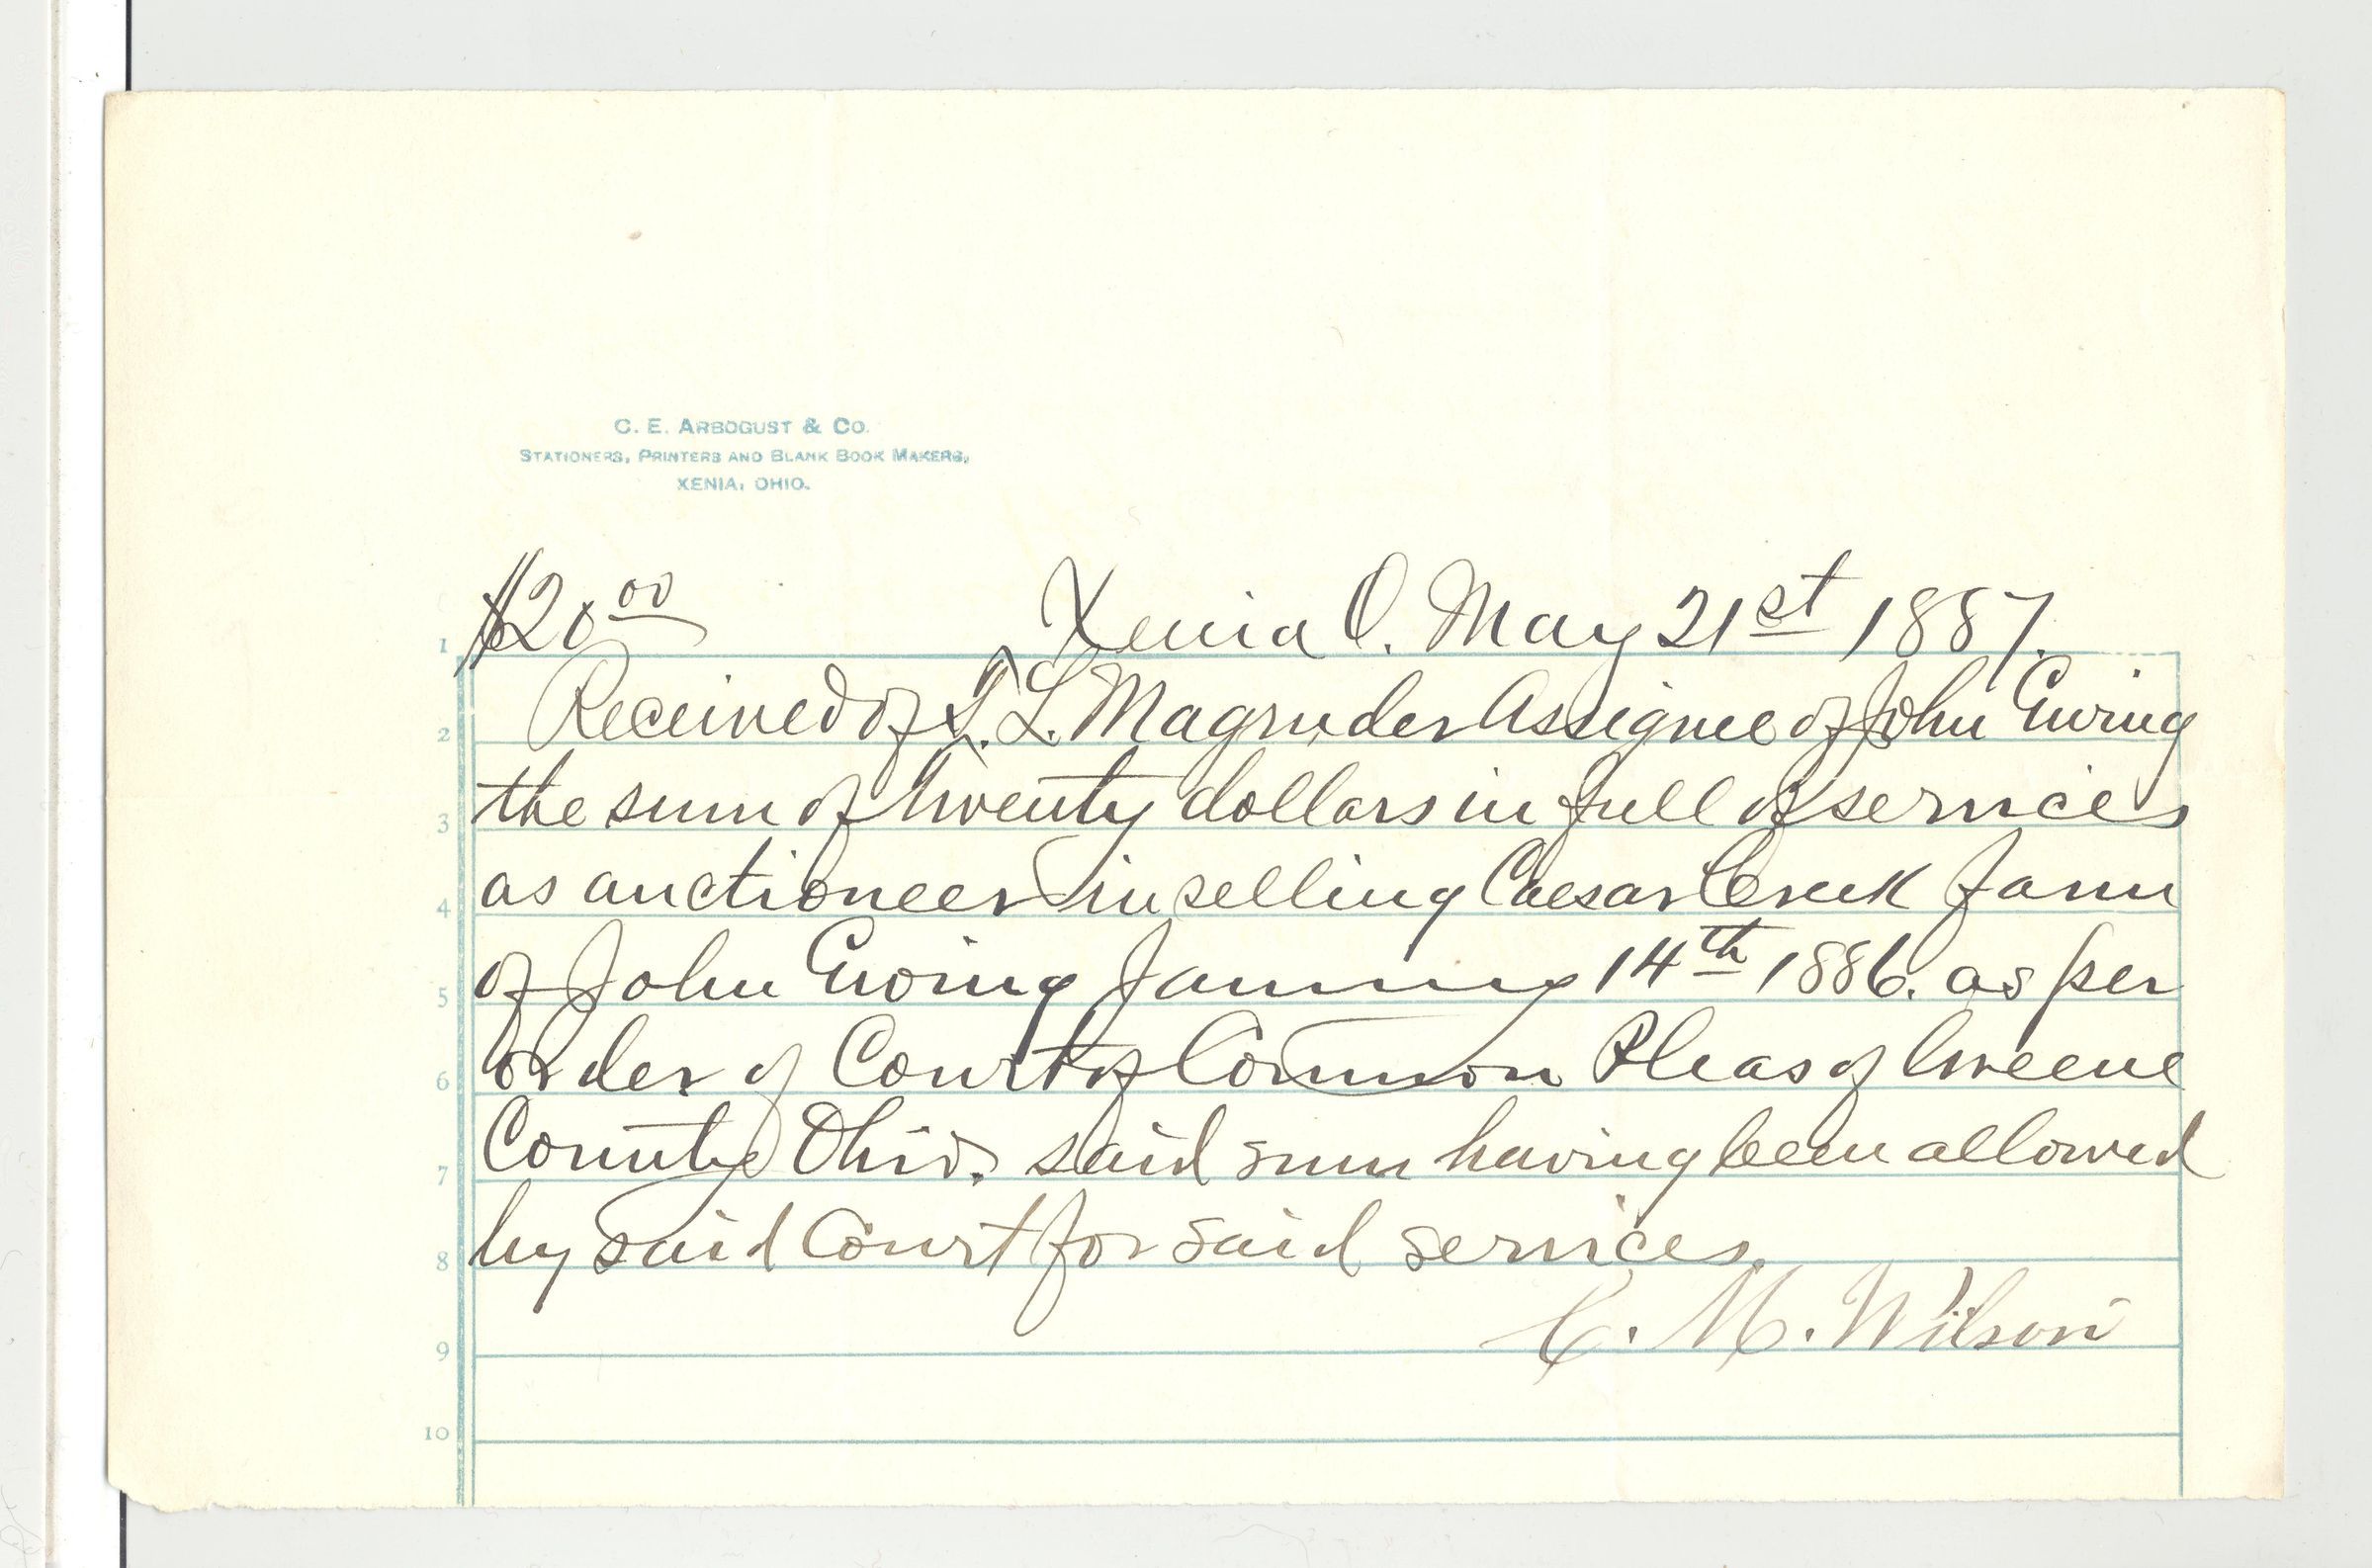 C. E. ARBOGUST & CO.
STATIONERS, PRINTERS AND BLANK BOOK MAKERS,
XENIA, OHIO.
$20 00 Xenia O. May 21st 1887.
1
Received of T. L. Magruder Assignee of John Ewing
2
the sum of twenty dollars in full of services
3
as auctioneer in selling Caesar Creek farm
4
of John Ewing January 14th 1886. as per
5
order of Court of Common Pleas of Greene
6
County Ohio. said sum having been allowed
7
by said Court for said services.
8
C. M. Wilson
9
10